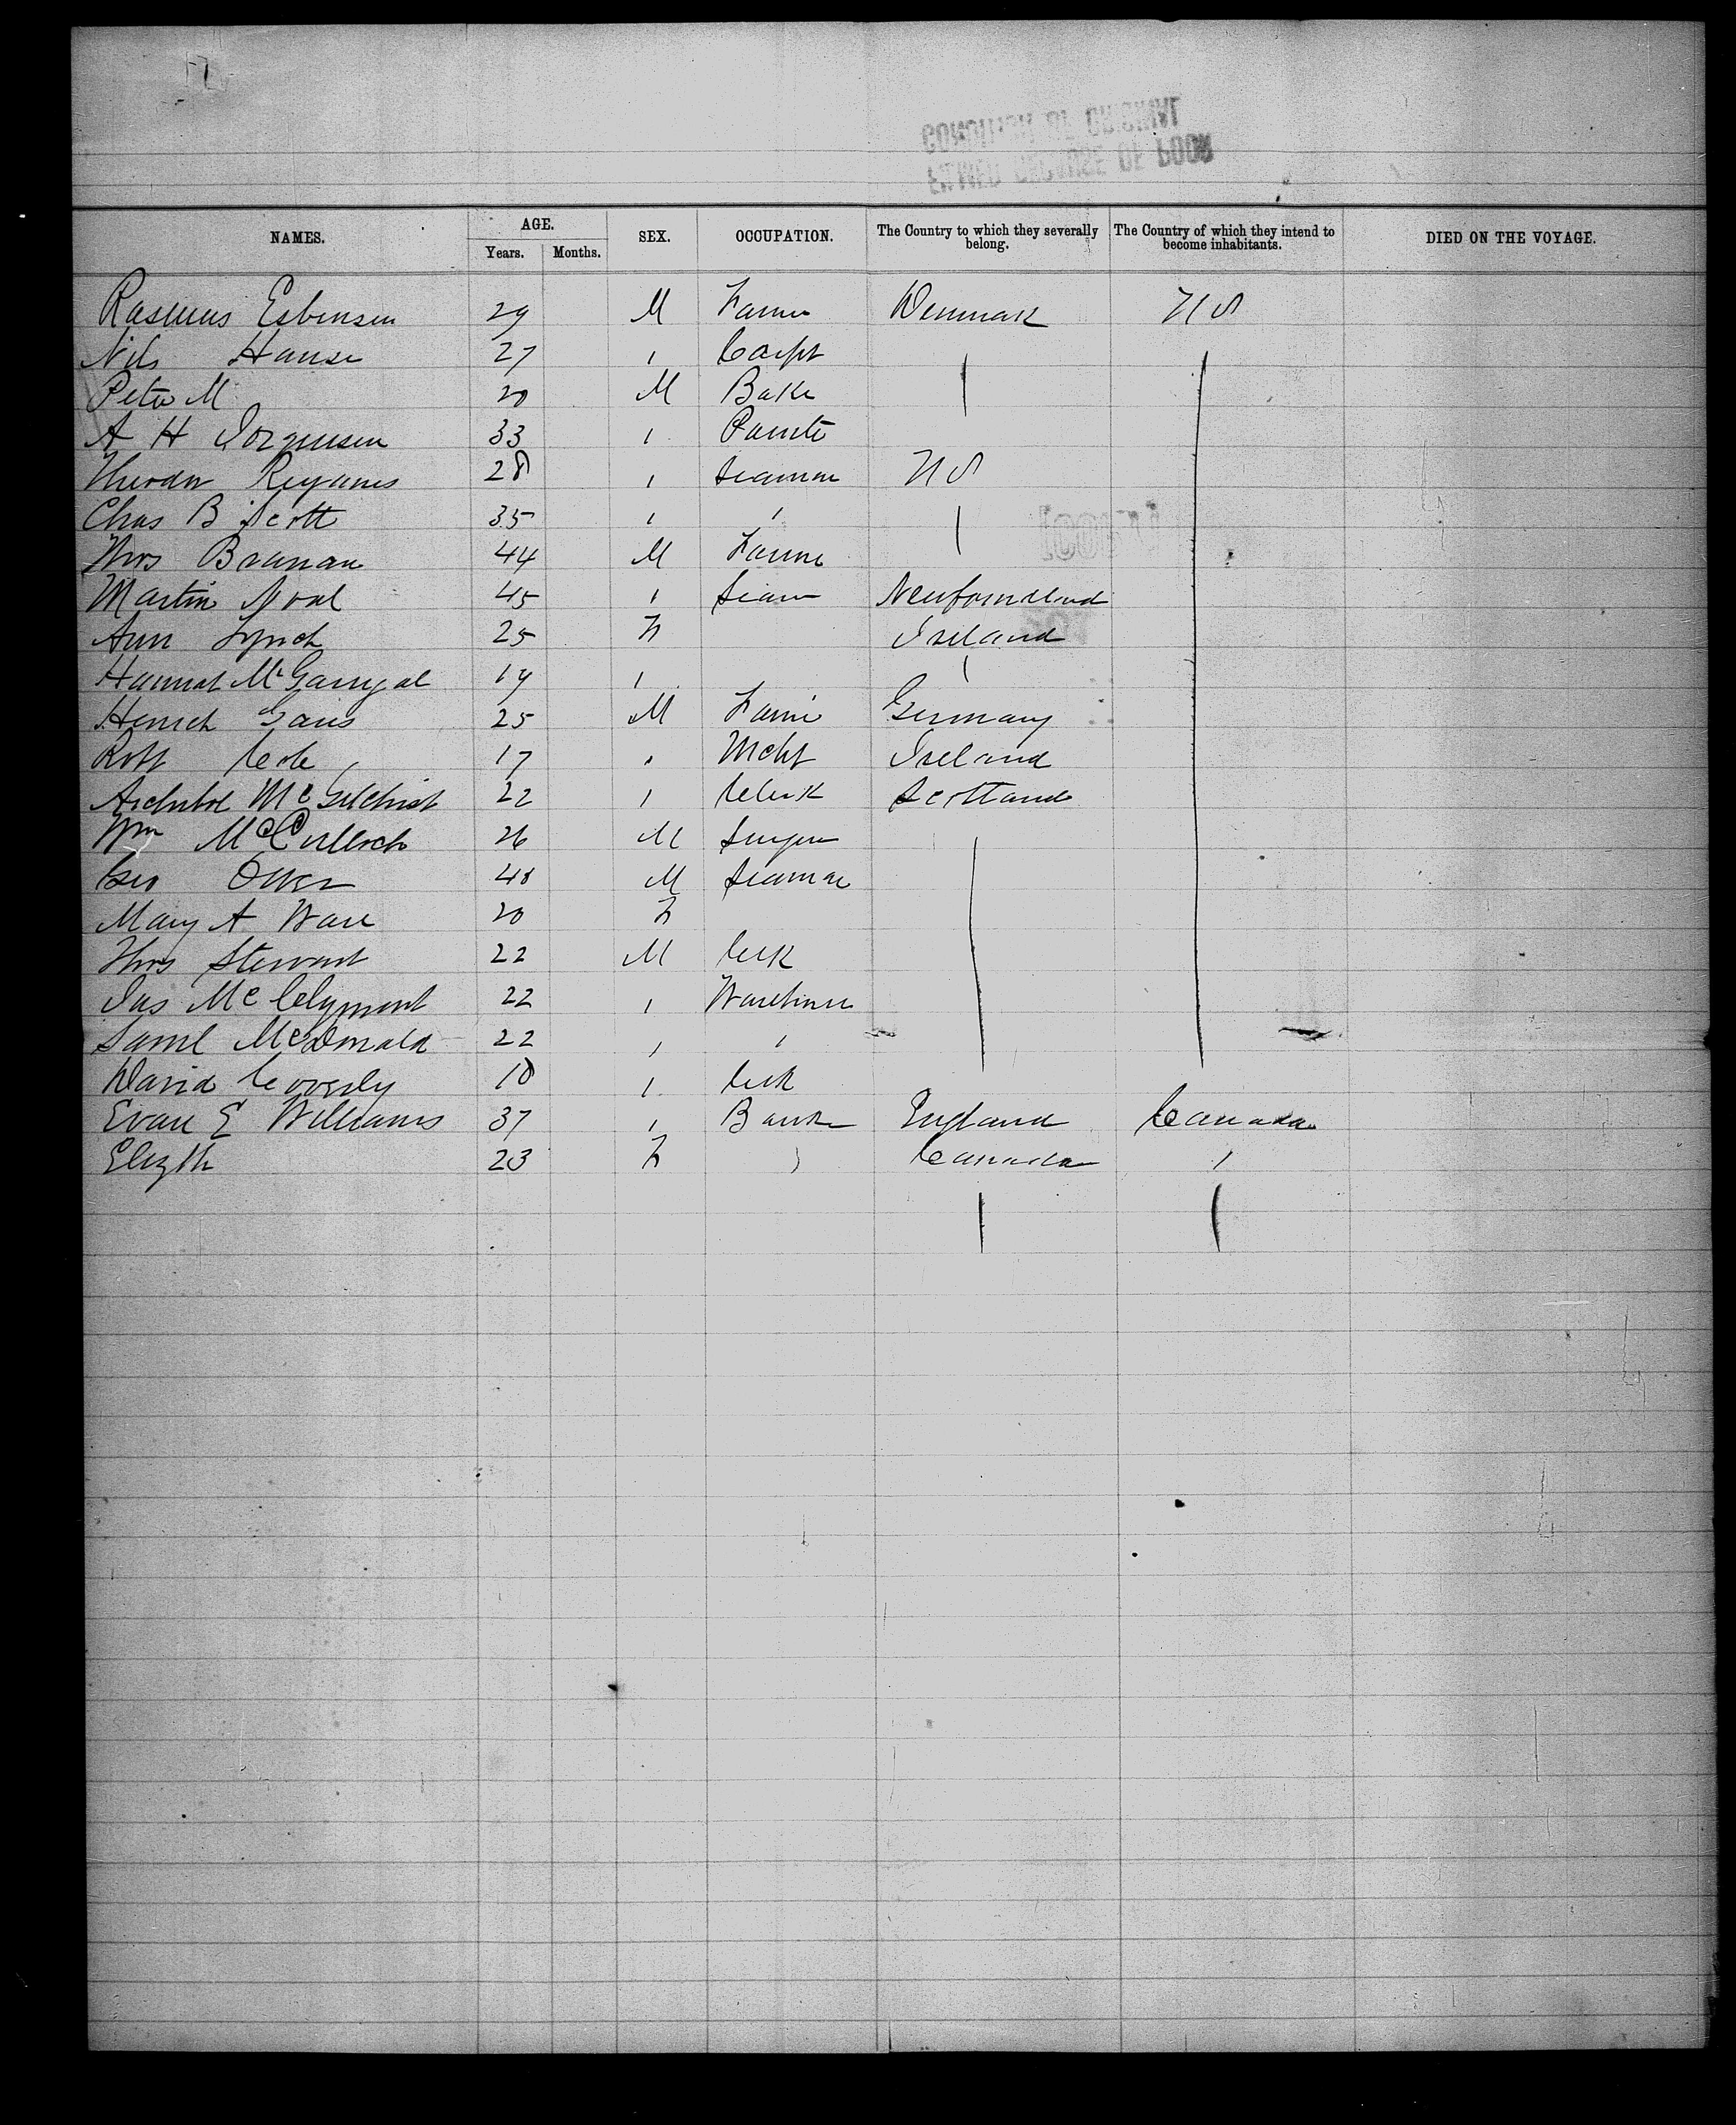 NAMES. AGE. SEX. OCCUPATION. The Country to which they severally belong. The Country of which they intend to become inhabitants. DIED ON THE VOYAGE.
Years. Months.
Rasmus Esbensen 29 M Farme Denmark US
Nils Hanse 27 " Carpt
Peter M 20 M Bake
A H Jorgensen 33 " Painte
28 " Seaman US
Chas B Scott 35 " "
Thos Branan 44 M Farme
Martin 45 " Seam Newfoundland
Ann Lynch 25 F Ireland
Hannah McGarrigal 19 " "
25 M Farme Germany
Robt Cole 17 " Mcht Ireland
Archibd McGilchrist 22 " Clerk Scotland
Wm McCulloch 26 M Surgeon
Geo 48 M Seaman
Mary A Ware 20 F
Thos Stewart 22 M Clerk
Jas McClymont 22 " Warehouse
Saml McDonald 22 " "
David Coverly 18 " Clerk
Evan E Williams 37 " Banke England Canada
Elizth 23 F " Canada "